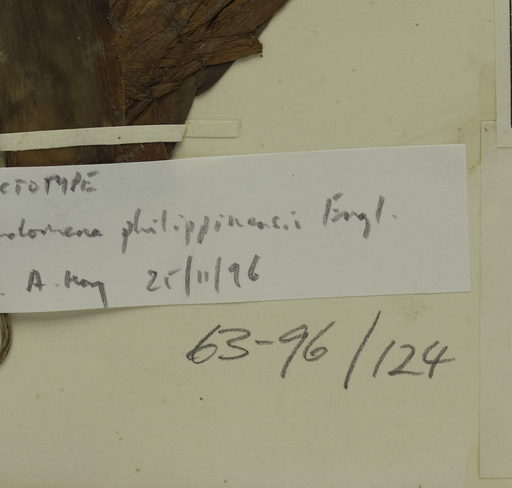 CTOTYPE
alomena philippinensis Engl.
A. Hay 25/11/96
63-96/124